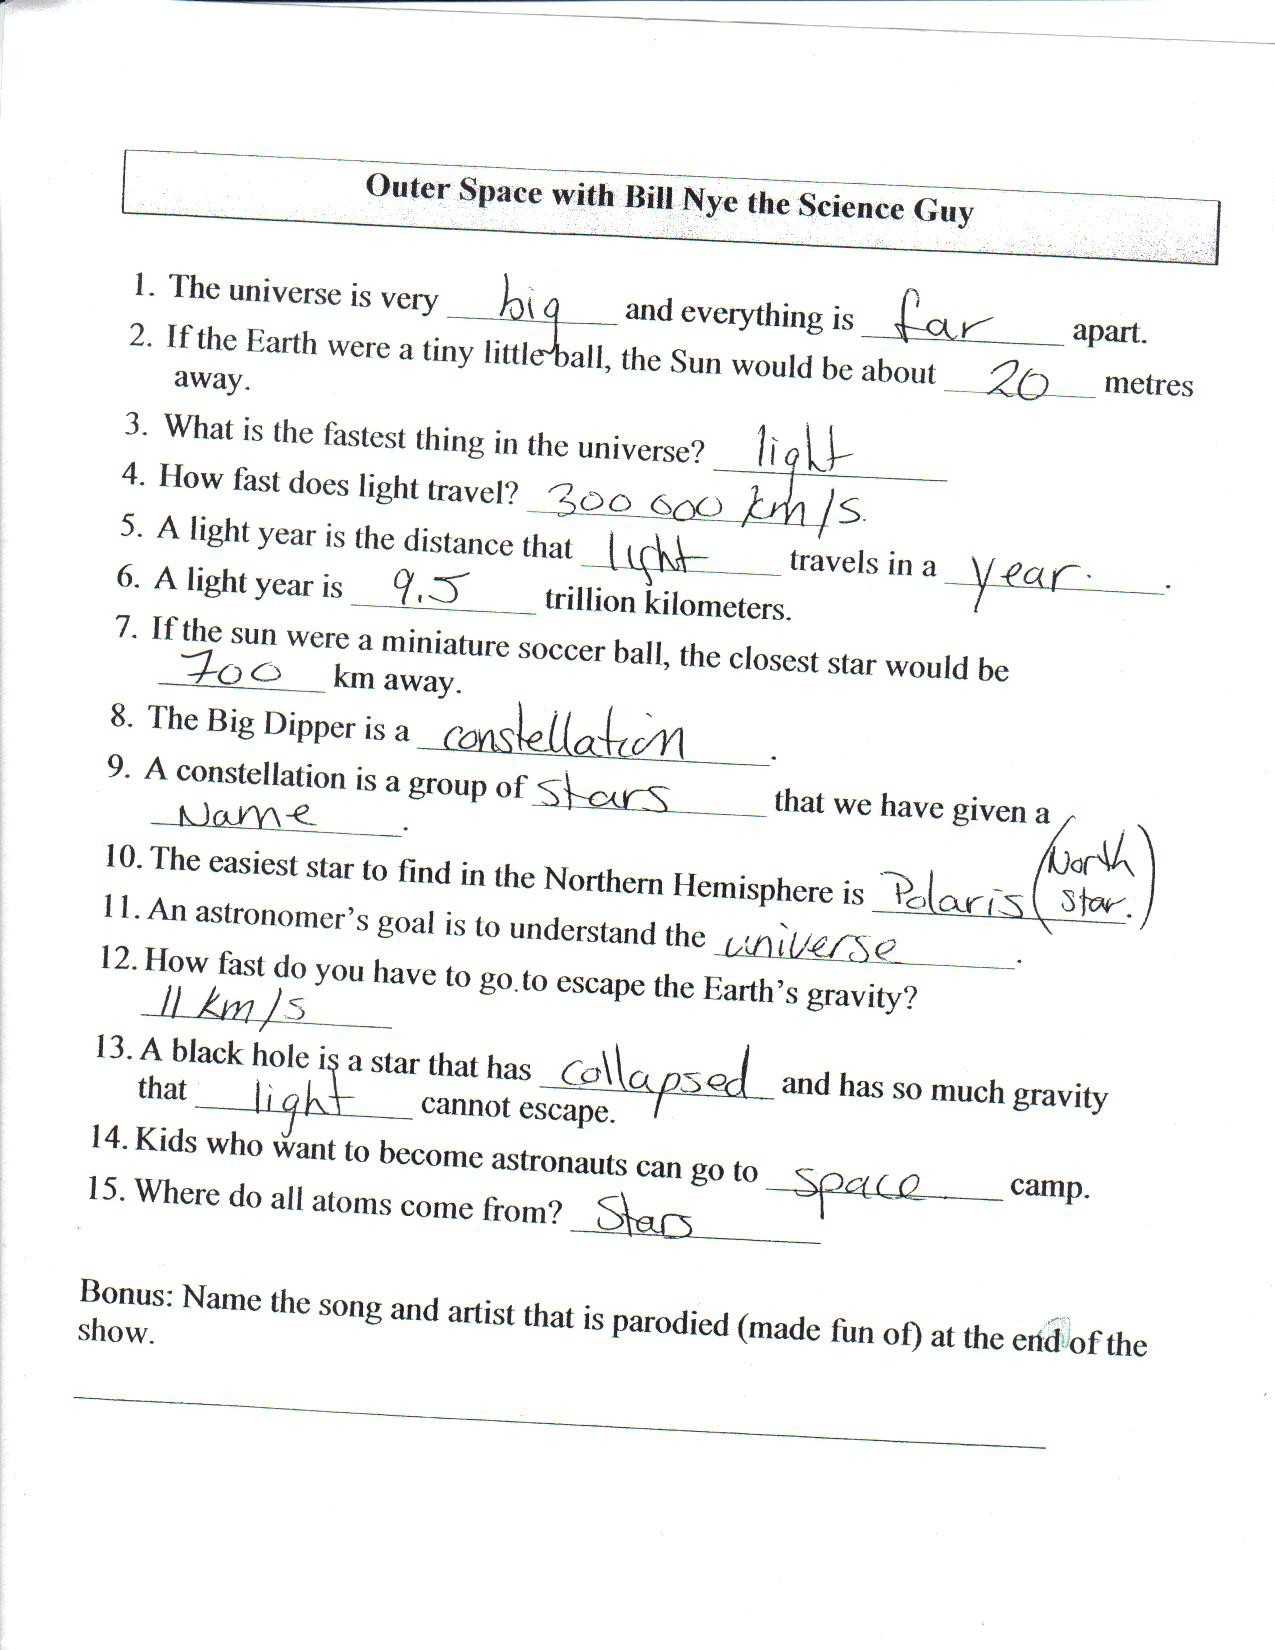 Outer Space with Bill Nye the Science Guy
1. The universe is very big and everything is far apart.
2. If the Earth were a tiny little ball, the Sun would be about 20 metres
away.
3. What is the fastest thing in the universe? light
4. How fast does light travel? 300 000 km/s.
5. A light year is the distance that light travels in a year.
6. A light year is 9.5 trillion kilometers.
7. If the sun were a miniature soccer ball, the closest star would be
700 km away.
8. The Big Dipper is a constellation.
9. A constellation is a group of stars that we have given a
Name.
10. The easiest star to find in the Northern Hemisphere is Polaris (North
Star.)
11. An astronomer's goal is to understand the universe.
12. How fast do you have to go to escape the Earth's gravity?
11 km/s
13. A black hole is a star that has collapsed and has so much gravity
that light cannot escape.
14. Kids who want to become astronauts can go to space camp.
15. Where do all atoms come from? Stars
Bonus: Name the song and artist that is parodied (made fun of) at the end of the
show.